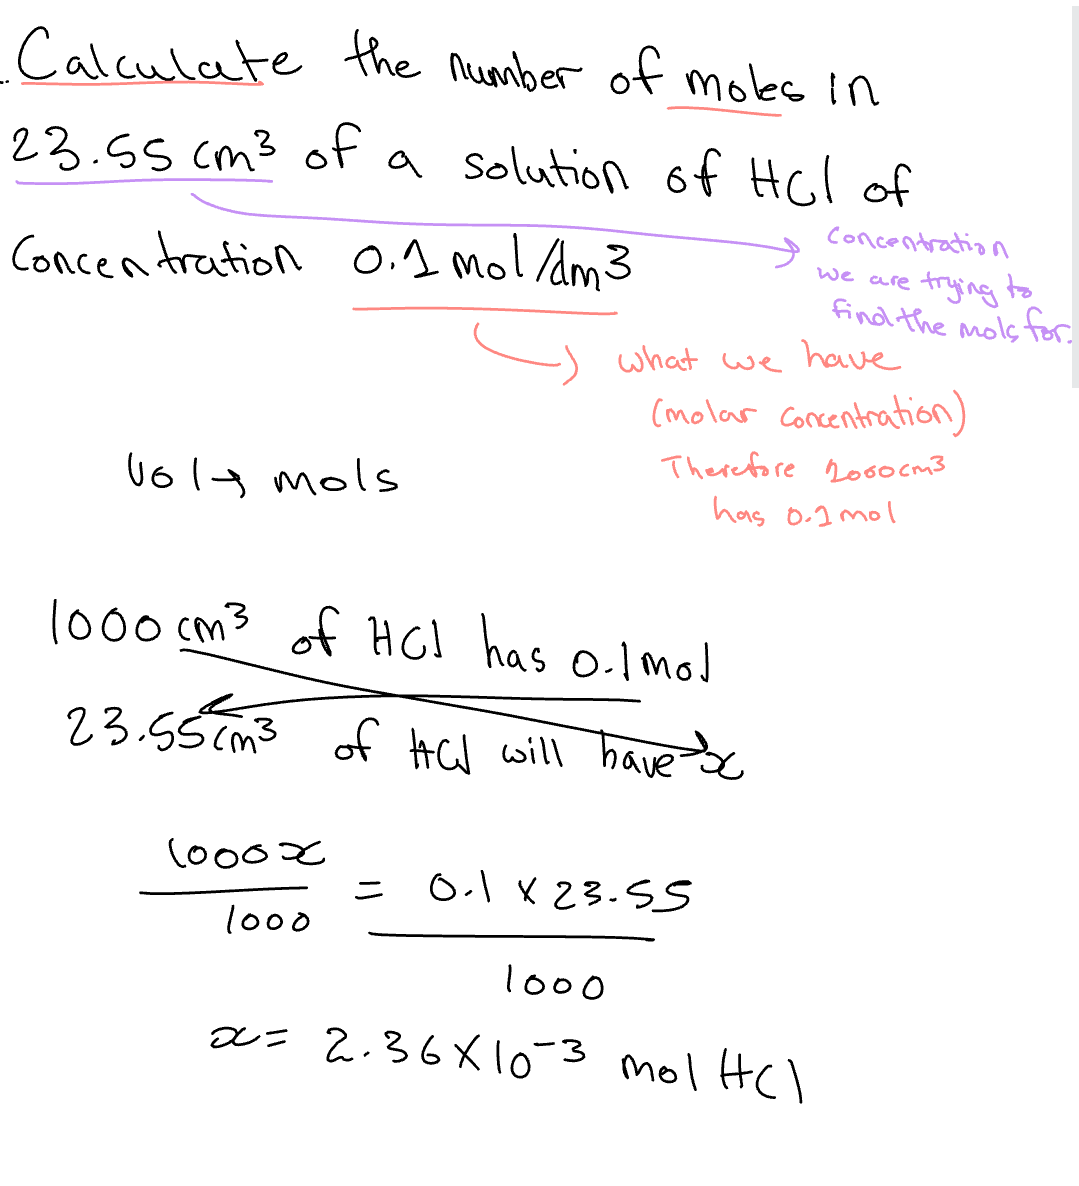 Calculate the number of moles in
23.55 cm³ of a solution of HCl of
Concentration 0.1 mol/dm3
Concentration
we are trying to
find the mols for.
what we have
(molar concentration)
Therefore 1000cm3
has 0.1 mol
Vol → mols
1000 cm³ of HCl has 0.1 mol
23.55 cm³ of HCl will have x
1000x
1000
= 0.1 x 23.55
1000
x = 2.36 X 10⁻³ mol HCl